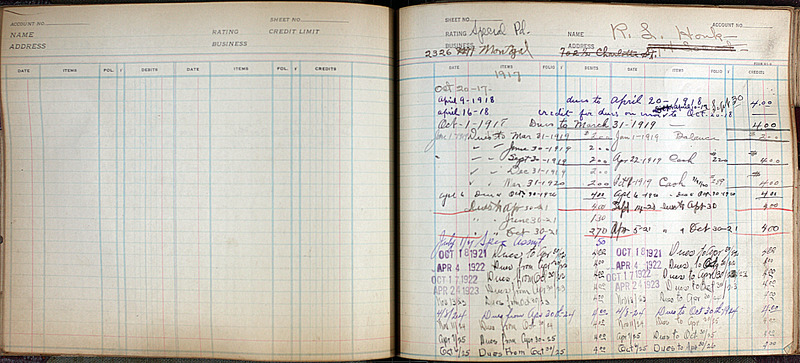 SHEET NO.
ACCOUNT NO.
NAME
RATING
CREDIT LIMIT
ADDRESS
BUSINESS
DATE ITEMS FOL. DEBITS DATE ITEMS FOL. CREDITS
SHEET NO.
RATING Special Pd.
NAME R. L. Honk
ACCOUNT NO.
BUSINESS
2326 Montgal
ADDRESS 702 1/2 Charlotte St.
DATE ITEMS FOLIO DEBITS DATE ITEMS FOLIO CREDITS
1917
Oct 20-17-
April 9-1918 dues to April 20- 4.00
april 16-18 credit for dues on error to Oct. -18
Oct-1-1918 Dues to March 31-1919 4.00
Dues to Mar 31-1919 2.00 Jan 1-1919 Balance 2.00
" " June 30-1919 2.00
" " Sept 30-1919 2.00 Apr 22-1919 Cash 220 4.00
" " Dec 31-1919 2.00
" " Mar 31-1920 2.00 Oct 1919 Cash 4.00
Apl 6 Dues 30-1920 4.00 Apl 6 Dues 30-1920 4.00
Dues to Apr 30-21 4.00 Sept 14-20 dues to Apr 30 4.00
" " June 30-21 1.30
" " Oct 30-21 2.70 Apr 5-21 " " Oct 30-21 4.00
July 1/21 Spec Assmt 50
OCT 18 1921 Dues to Apr 4.00 OCT 18 1921 Dues to Apr 4.00
APR 4 1922 Dues from Apr 4.00 APR 4 1922 Dues to Oct 4.00
OCT 17 1922 Dues from Oct 4.00 OCT 17 1922 Dues to Apr 30 4.00
APR 24 1923 Dues from Apr 30/23 4.00 APR 24 1923 Dues to Oct 4.00
Nov 13/23 Dues from Oct 30/23 4.00 Nov 13/23 Dues to Apr 4.00
4/3/24 Dues from Apr 30th-24 4.00 4/3-24 Dues to Oct 30th 1924 4.00
Nov 11/24 Dues from Oct 30/24 4.00 Nov 11/24 Dues to Apr 4.00
Apr 7/25 Dues from Apr 30/25 4.00 Apr 7/25 Dues to Oct 30/25 4.00
Oct 6/25 Dues From Oct 30/25 4.00 Oct 6/25 Dues to Apr 30/26 4.00